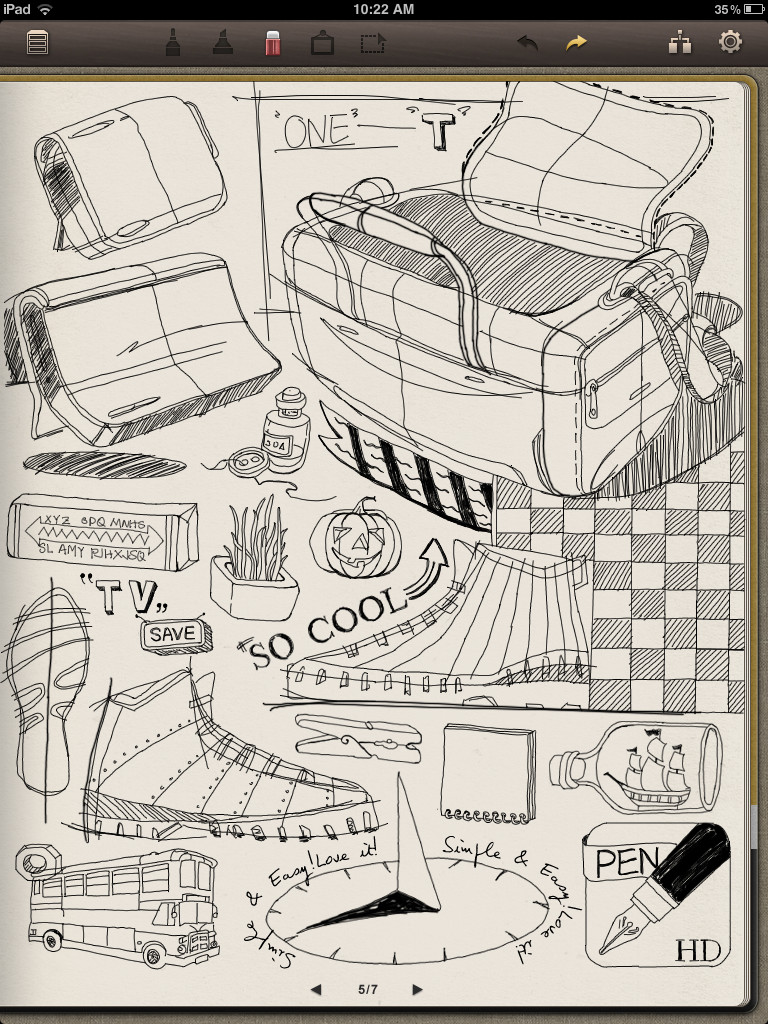 iPad
10:22 AM
35%
"ONE"
"T"
SODA
XYZ OPQ MNHS
SL AMY RJHXJSQ
"TV"
SAVE
"SO COOL
Simple & Easy! Love it!
Simple & Easy! Love it!
PEN
HD
5/7